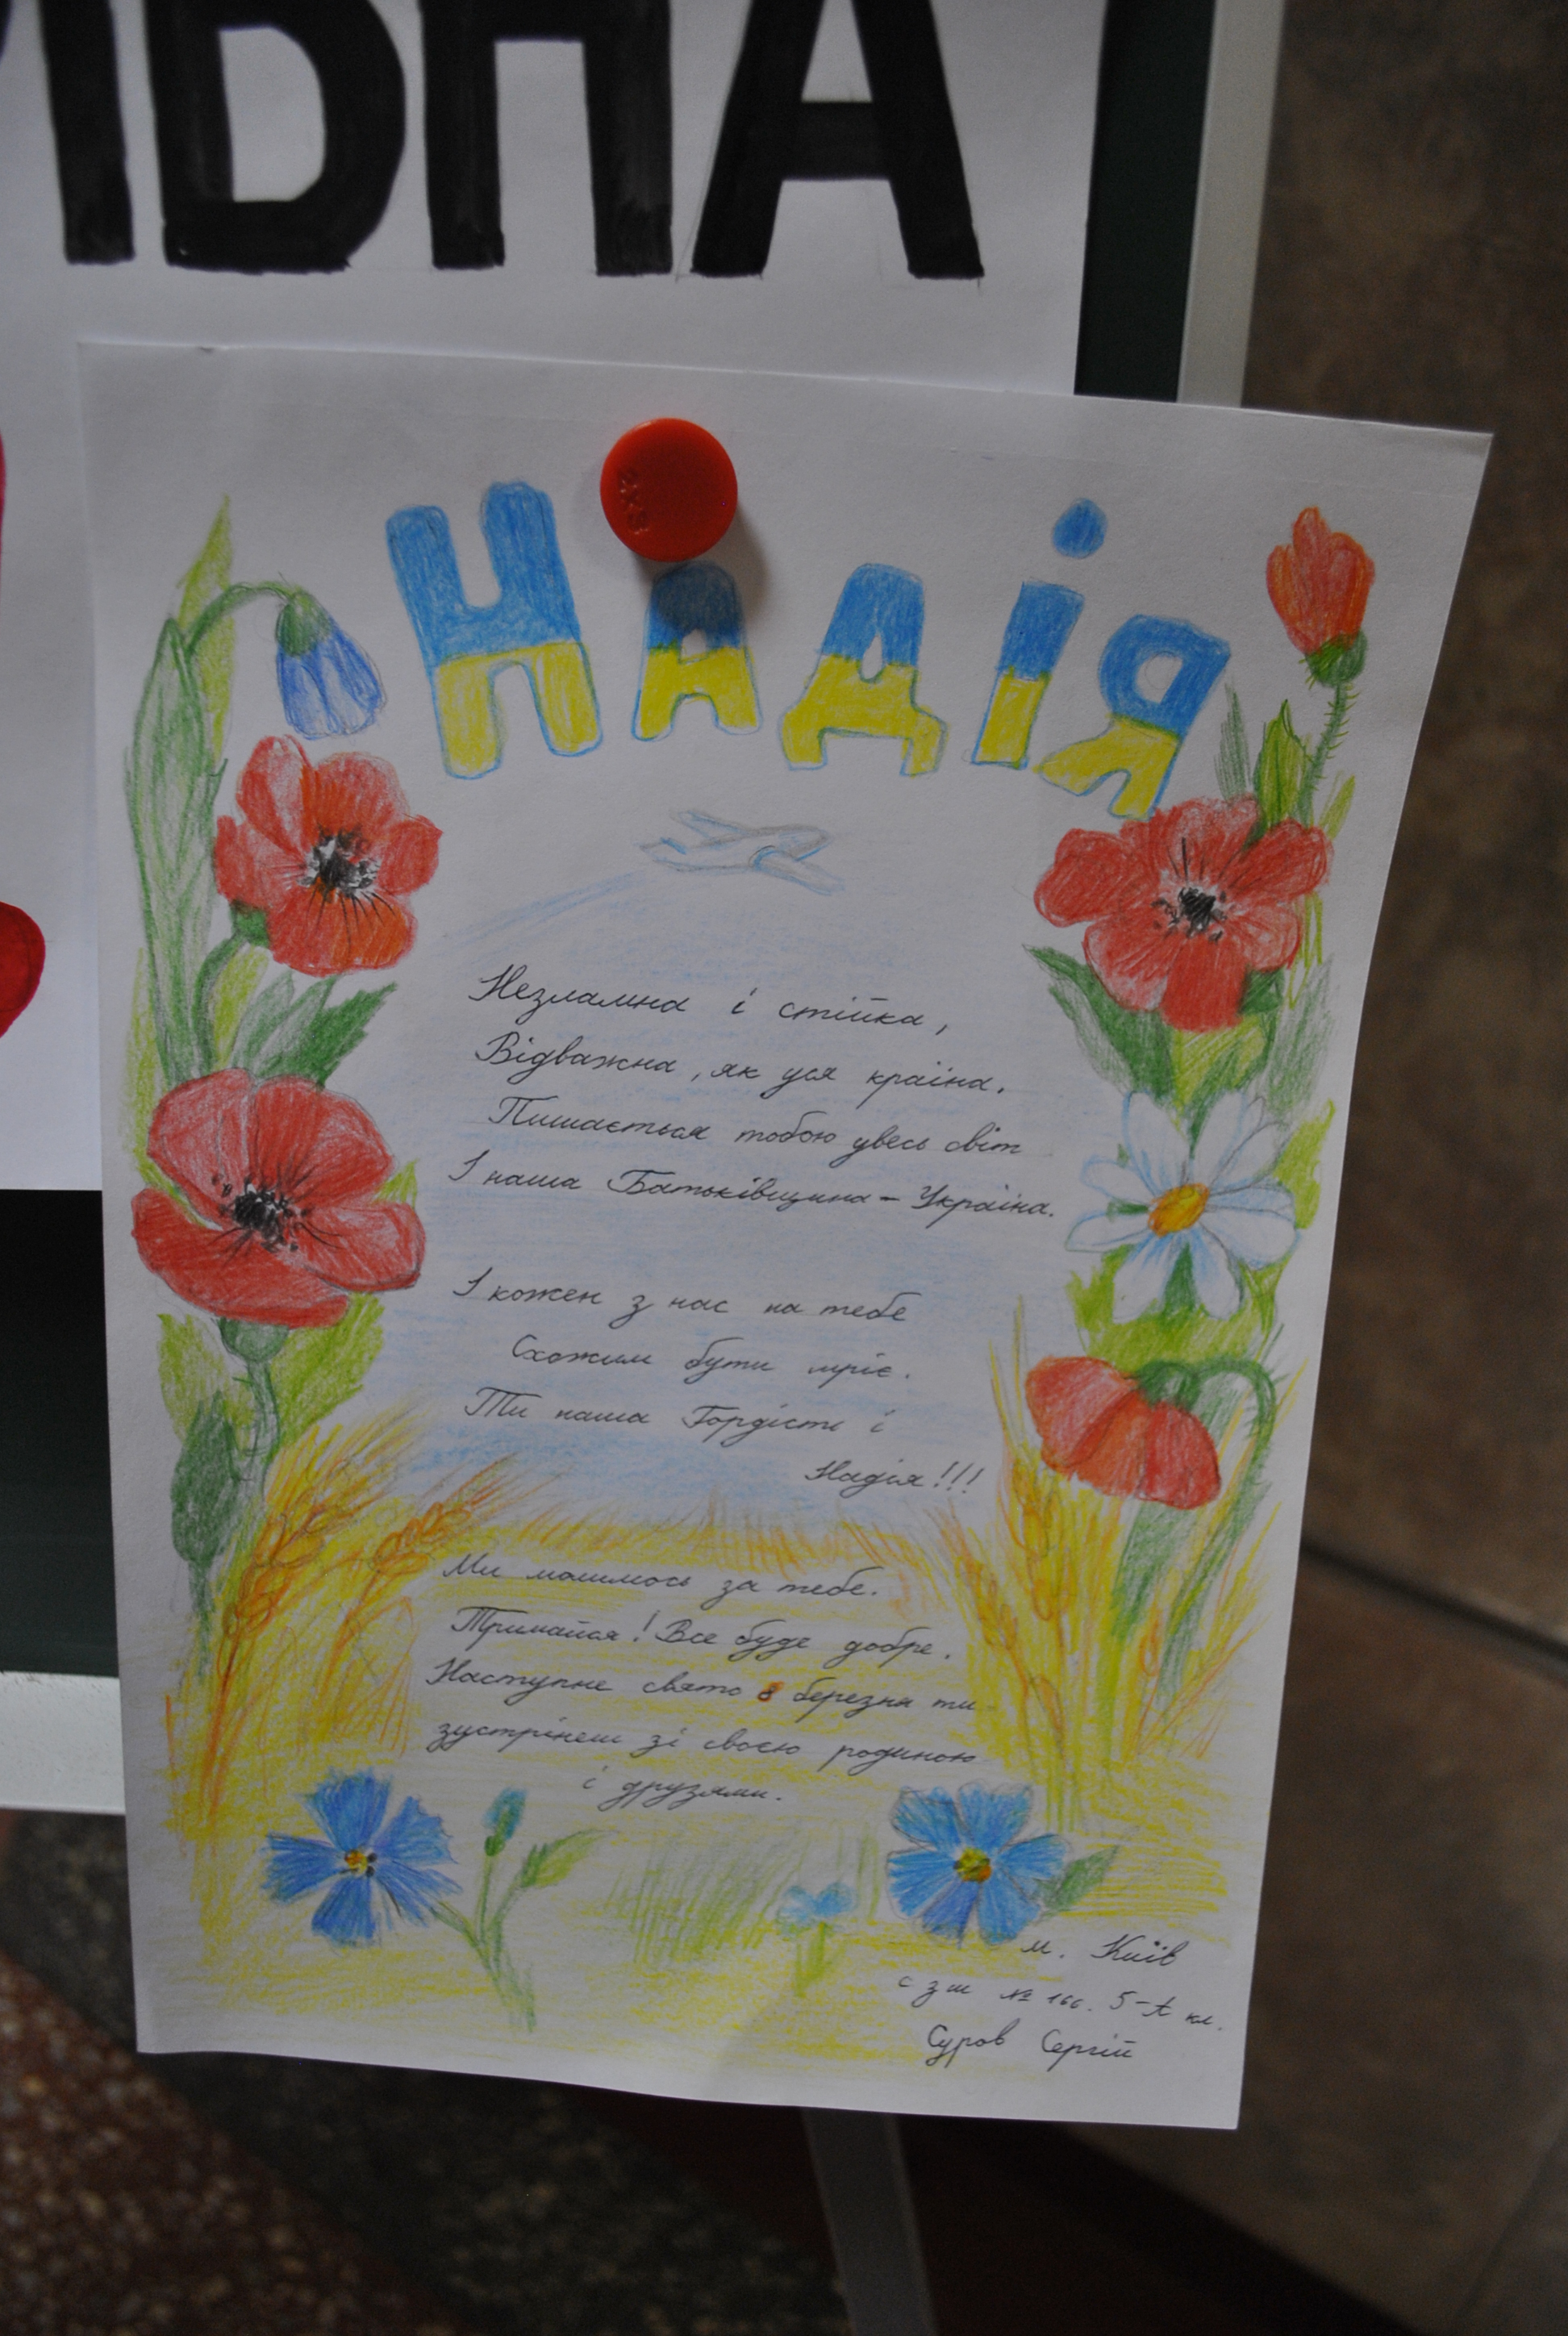 ІВНА
НАДІЯ
Незламна і стійка,
Відважна, як уся країна.
Пишається тобою увесь світ
І наша Батьківщина – Україна.
І кожен з нас на тебе
Схожим бути мріє.
Ти наша Гордість і
Надія!!!
Ми молимось за тебе.
Тримайся! Все буде добре.
Наступне свято 8 березня ти
зустрінеш зі своєю родиною
і друзями.
м. Київ
сзш № 166. 5-А кл.
Суров Сергій